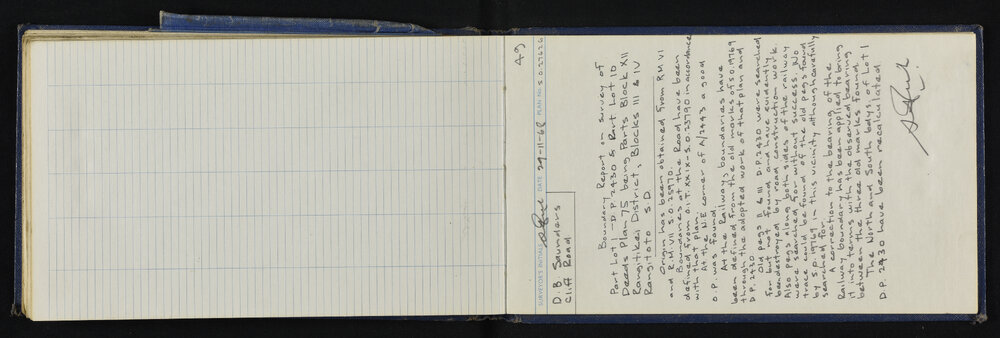 49
SURVEYOR'S INITIALS DATE 29-11-68 PLAN No. S.O. 27626
D. B. Saunders
Cliff Road
Boundary Report on survey of
Part Lot 1 - D.P. 2430 & Part Lot 10
Deeds Plan 75 being Parts Block XII
Rangitikei District, Blocks III & IV
Rangitoto S.D.
Origin has been obtained from RM VI
and RM VII S.O. 25970.
Boundaries at the Road have been
defined from O.I.T. XXIX - S.O. 25790 in accordance
with that plan
At the NE corner of A/2443 a good
O.P. was found
At the Railway, boundaries have
been defined from the old marks of S.O. 19769
through the adopted work of that plan and
D.P. 2430
Old pegs II & III D.P. 2430 were searched
for but not found and have evidently
been destroyed by road construction work.
Also pegs along both sides of the railway
were searched for without success. No
trace could be found of the old pegs found
by S.O. 19769 in this vicinity although carefully
searched for.
A correction to the bearing of the
Railway boundary has been applied to bring
it into terms with the observed bearing
between the three old marks found
The North and South bdys. of Lot 1
D.P. 2430 have been recalculated